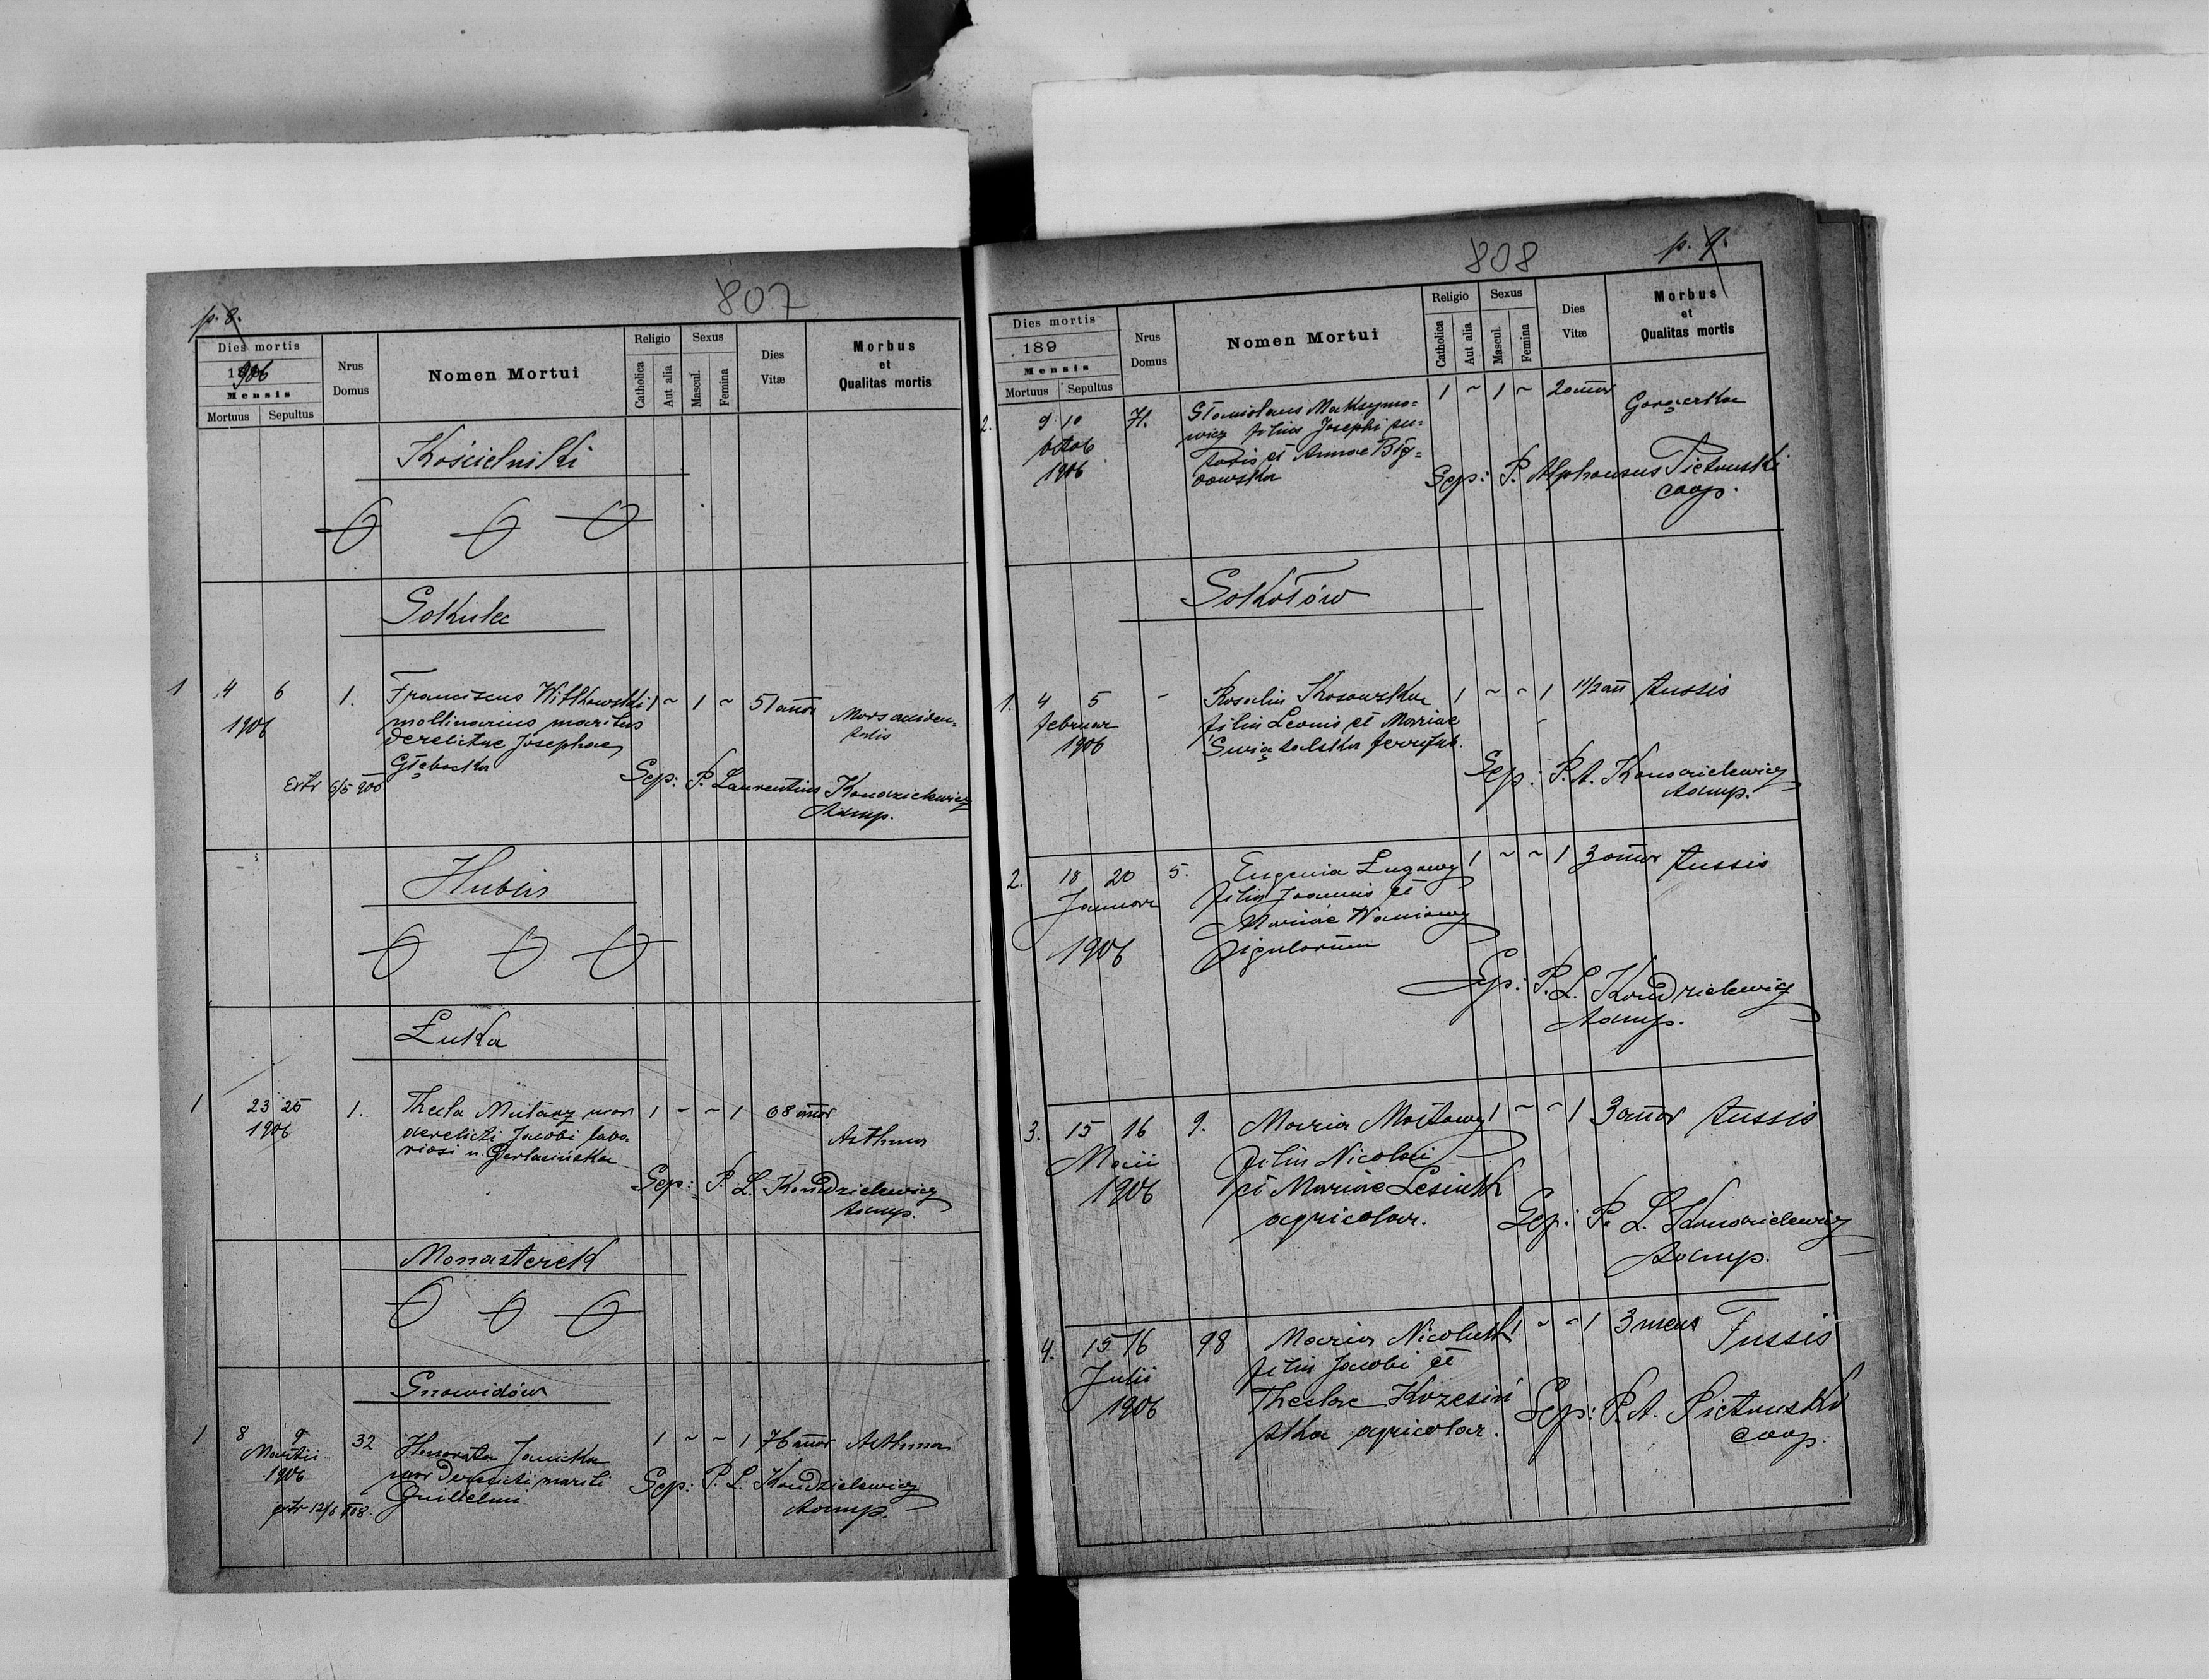 807
p. 8.
Dies mortis
1906
Mensis
Mortuus Sepultus
Nrus
Domus
Nomen Mortui
Religio
Catholica
Aut alia
Sexus
Mascul.
Femina
Dies
Vitæ
Morbus
et
Qualitas mortis
Kościelniki
Sokulec
1 4 6 1. Franciscus Witkowski 1 ~ 1 ~ 51 annor
1906 mollinarius maritus Mors acciden=
derelictae Josephae talis
Głębocka
Extr 6/5 900 Sep: P. Laurentius Kondzielewicz
Admp.
Hubin
Łuka
1 23 25 1. Thecla Mularz uxor 1 ~ ~ 1 68 annor
1906 derelicti Jacobi labo
riosi n. Gerlasińska Asthma
Sep: P. L. Kondzielewicz
Admp.
Monasterek
Snowidów
1 8 9 32 Honorata Janicka 1 ~ ~ 1 76 annor Asthma
Martii uxor derelicti mariti
1906 Guilielmi Sep: P. L. Kondzielewicz
extr 12/6 908. Admp.
808
p. 9.
Dies mortis
189
Mensis
Mortuus Sepultus
Nrus
Domus
Nomen Mortui
Religio
Catholica
Aut alia
Sexus
Mascul.
Femina
Dies
Vitæ
Morbus
et
Qualitas mortis
2. 9 10 71. Stanislaus Maksymo= 1 ~ 1 ~ 2 annor Gorączka
Octob wicz filius Josephi su=
1906 toris et Annae
Sep: P. Alphonsus Pietruski
coop.
Sokołów
1. 4 5 - Rosalia Kosowska 1 ~ ~ 1 1 1/2 an tussis
februar filia Leonis et Mariae
1906 Świątalska
Sep: P. L. Kondzielewicz
Admp.
2. 18 20 5. Eugenia Ługowy 1 ~ ~ 1 3 annor tussis
Januar filia Joannis et
Mariae Waniowy
1906 figulorum
Sep: P. L. Kondzielewicz
Admp.
3. 15 16 9. Maria Mostowy 1 ~ ~ 1 3 annor tussis
Maii filia Nicolai
1906 et Mariae Lesiuk
agricolar. Sep: P. L. Kondzielewicz
Admp.
4. 15 16 98 Maria Nicoluk 1 ~ ~ 1 3 mens Tussis
Julii filia Jacobi et
1906 Theclae Krzesiń
ska agricolar. Sep: P. A. Pietruski
coop.